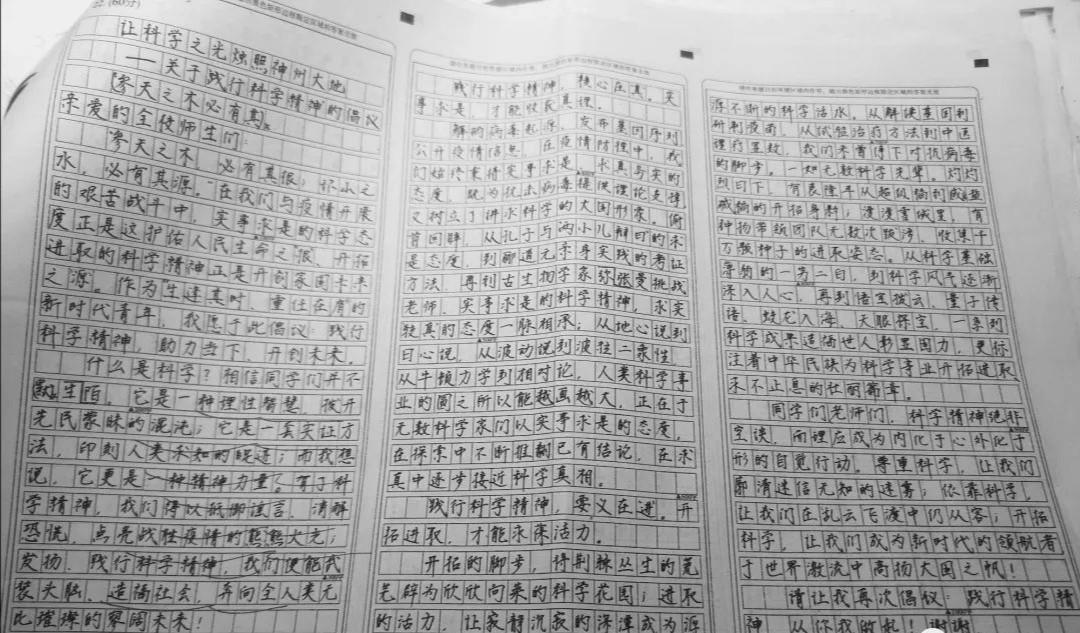 22.(60分)
让科学之光烛照神州大地
——关于践行科学精神的倡议
亲爱的全校师生们:
"参天之木,必有其根;怀山之
水,必有其源。"在我们与疫情开展
的艰苦战斗中,实事求是的科学态
度正是这护佑人民生命之"根",开拓
进取的科学精神正是开创家国未来
之"源"。作为"生逢其时,重任在肩"的
新时代青年,我愿于此倡议:践行
科学精神,助力当下,开创未来。
什么是科学?相信同学们并不
陌生。它是一种理性智慧,拨开
先民蒙昧的混沌;它是一套实证方
法,印刻人类求知的；而我想
说,它更是一种精神力量。有了科
学精神,我们得以抵御谣言,消解
恐慌,点是战胜疫情的熊熊火光;
发扬、践行科学精神,我们便能武
装头脑、造福社会,奔向全人类无
比璀璨的未来!
践行科学精神,核心在真。实
事求是,才能收获真理。
解的病毒起源,发布基因序列
公开疫情信息,在疫情防控中,我
们始终秉持实事求是、求真务实的
态度,既为抗击病毒提供理论支撑
又树立了讲求科学的大国形象。俯
首回眸,从孔子与"两小儿辩日"的求
是态度,到郦道元亲身实践的考证
方法,再到古生物学家张弥曼挑战
老师,实事求是的科学精神,求实
较真的态度一脉相承;从地心说到
日心说,从波动说到波粒二象性
从牛顿力学到相对论,人类科学事
业的圆之所以能越画越大,正在于
无数科学家们以实事求是的态度,
在探索中不断推翻已有结论,在求
真中逐步接近科学真相。
践行科学精神,要义在进。开
拓进取,才能永葆活力。
开拓的脚步,将荆棘丛生的荒
芜辟为欣欣向荣的科学花园;进取
的活力,让寂静沉寂的深潭成为源
源不断的科学活水。从解读基因到
研制疫苗,从试验治疗方法到中医
理疗显效,我们未曾停下对抗病毒
的脚步。一如无数科学先辈。灼灼
烈日下,有袁隆平从超级稻到
碱稻的开拓身影;漫漫雪域里,有
钟扬带领团队无数次跋涉,收集千
万颗种子的进取姿态。从科学基础
薄弱的一穷二白,到科学风气逐渐
深入人心,再到悟空拨云,量子传
语,蛟龙入海,天眼探空,一系列
科学成果造福世人彰显国力,更标
注着中华民族为科学事业开拓进取、
永不止息的壮丽篇章。
同学们老师们,科学精神绝非
空谈,而理应成为内化于心外化于
形的自觉行动。尊重科学,让我们
廓清迷信无知的迷雾;依靠科学,
让我们在乱云飞渡中仍从容;开拓
科学,让我们成为新时代的领航者
于世界激流中高扬大国之帆!
请让我再次倡议:践行科学精
神,从你我做起!谢谢